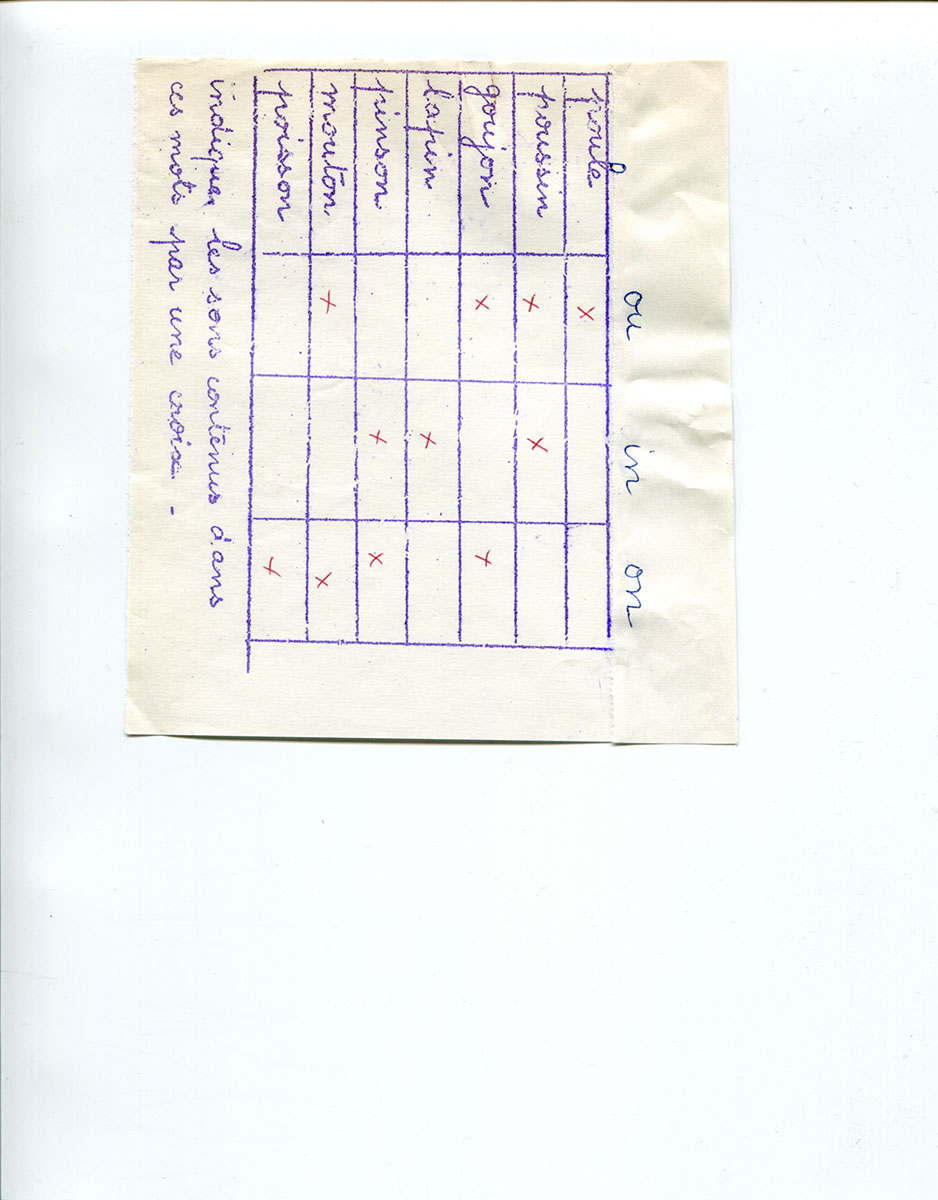 ou in on
poule x
poussin x x
goujon x x
lapin x
pinson x x
mouton x x
poisson x
indiquer les sons contenus dans
ces mots par une croix -